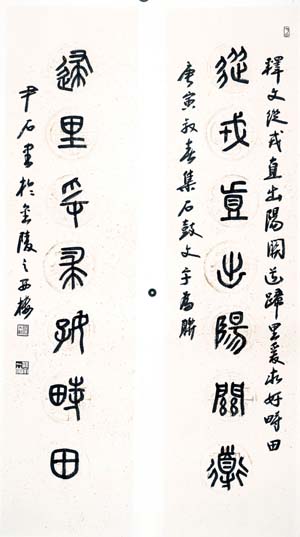 釋文從戎直出陽關道歸里爰求好畤田
從戎直出陽關道
庚寅初春集石鼓文字為聯
歸里爰求好畤田
尹石書於金陵之西樓